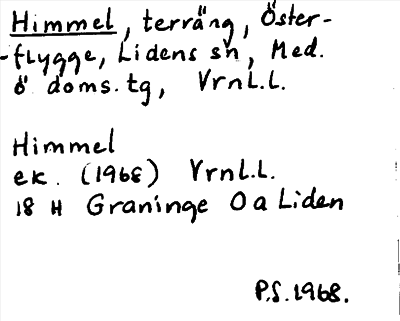 Himmel, terräng, Öster-
-flygge, Lidens sn, Med.
ö doms.tg, VrnL.L.
Himmel
ek. (1968) VrnL.L.
18 H Graninge O a Liden
P.S. 1968.